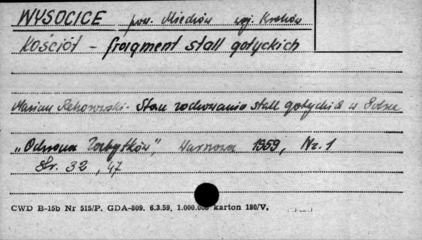 WYSOCICE pow. Miechów woj. Kraków
Kościół - fragment stall gotyckich
Marian Rehorowski - Stan zachowania stall gotyckich w Polsce
"Ochrona Zabytków", Warszawa 1959, Nr. 1
Str. 32, 47
CWD B-15b Nr 515/P. GDA-809. 6.3.59. 1.000.000 karton 180/V.